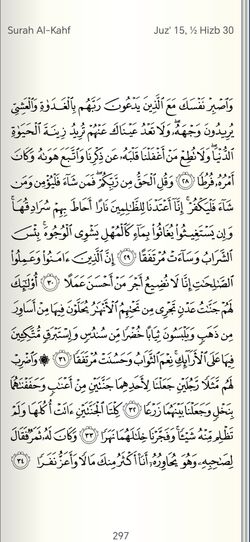 Surah Al-Kahf
Juz' 15, ½ Hizb 30
وَٱصْبِرْ نَفْسَكَ مَعَ ٱلَّذِينَ يَدْعُونَ رَبَّهُم بِٱلْغَدَوٰةِ وَٱلْعَشِيِّ
يُرِيدُونَ وَجْهَهُۥ ۖ وَلَا تَعْدُ عَيْنَاكَ عَنْهُمْ تُرِيدُ زِينَةَ ٱلْحَيَوٰةِ
ٱلدُّنْيَا ۖ وَلَا تُطِعْ مَنْ أَغْفَلْنَا قَلْبَهُۥ عَن ذِكْرِنَا وَٱتَّبَعَ هَوَىٰهُ وَكَانَ
أَمْرُهُۥ فُرُطًا ٢٨ وَقُلِ ٱلْحَقُّ مِن رَّبِّكُمْ ۖ فَمَن شَآءَ فَلْيُؤْمِن وَمَن
شَآءَ فَلْيَكْفُرْ ۚ إِنَّآ أَعْتَدْنَا لِلظَّـٰلِمِينَ نَارًا أَحَاطَ بِهِمْ سُرَادِقُهَا ۚ
وَإِن يَسْتَغِيثُوا۟ يُغَاثُوا۟ بِمَآءٍ كَٱلْمُهْلِ يَشْوِى ٱلْوُجُوهَ ۚ بِئْسَ
ٱلشَّرَابُ وَسَآءَتْ مُرْتَفَقًا ٢٩ إِنَّ ٱلَّذِينَ ءَامَنُوا۟ وَعَمِلُوا۟
ٱلصَّـٰلِحَـٰتِ إِنَّا لَا نُضِيعُ أَجْرَ مَنْ أَحْسَنَ عَمَلًا ٣٠ أُو۟لَـٰٓئِكَ
لَهُمْ جَنَّـٰتُ عَدْنٍ تَجْرِى مِن تَحْتِهِمُ ٱلْأَنْهَـٰرُ يُحَلَّوْنَ فِيهَا مِنْ أَسَاوِرَ
مِن ذَهَبٍ وَيَلْبَسُونَ ثِيَابًا خُضْرًا مِّن سُندُسٍ وَإِسْتَبْرَقٍ مُّتَّكِـِٔينَ
فِيهَا عَلَى ٱلْأَرَآئِكِ ۚ نِعْمَ ٱلثَّوَابُ وَحَسُنَتْ مُرْتَفَقًا ٣١ ۞ وَٱضْرِبْ
لَهُم مَّثَلًا رَّجُلَيْنِ جَعَلْنَا لِأَحَدِهِمَا جَنَّتَيْنِ مِنْ أَعْنَـٰبٍ وَحَفَفْنَـٰهُمَا
بِنَخْلٍ وَجَعَلْنَا بَيْنَهُمَا زَرْعًا ٣٢ كِلْتَا ٱلْجَنَّتَيْنِ ءَاتَتْ أُكُلَهَا وَلَمْ
تَظْلِم مِّنْهُ شَيْـًٔا ۚ وَفَجَّرْنَا خِلَـٰلَهُمَا نَهَرًا ٣٣ وَكَانَ لَهُۥ ثَمَرٌ فَقَالَ
لِصَـٰحِبِهِۦ وَهُوَ يُحَاوِرُهُۥٓ أَنَا۠ أَكْثَرُ مِنكَ مَالًا وَأَعَزُّ نَفَرًا ٣٤
297